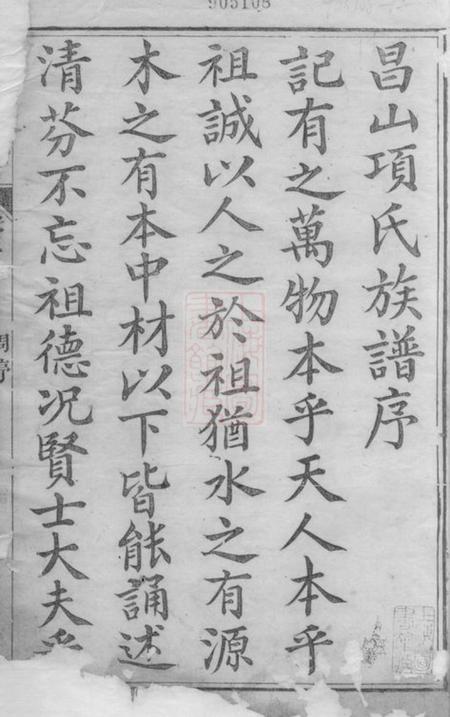 905108
昌山項氏族譜序
記有之萬物本乎天人本乎
祖誠以人之於祖猶水之有源
木之有本中材以下皆能誦述
清芬不忘祖德况賢士大夫乎